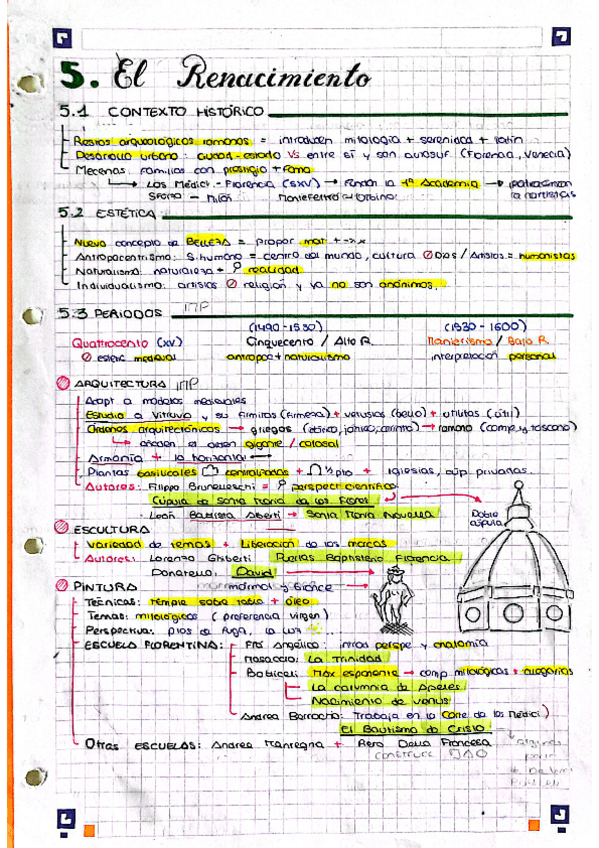 5. El Renacimiento
5.1 CONTEXTO HISTÓRICO
Restos arqueológicos romanos = introducen mitología + serenidad + latín
Desarrollo urbano: ciudad-estado VS entre sí y son autosuf. (Florencia, Venecia)
Mecenas: Familias con prestigio + fama
Los Médici - Florencia (SXV) → Fundan la 1ª Academia →
Sforza - Milán Montefeltro - Urbino
5.2 ESTÉTICA
Nuevo concepto de BELLEZA = propor mat
Antropocentrismo: S.humano = centro del mundo, cultura Dios / Artistas = humanistas
Naturalismo: naturaleza + realidad
Individualismo: artistas religión y ya no son anónimos.
5.3 PERIODOS IMP
(1490-1530) (1530-1600)
Quattrocento (XV) Cinquecento / Alto R. Manierismo / Bajo R.
esteric medieval antropoc + naturalismo interpretación personal
ARQUITECTURA IMP
Adapt a modelos medievales
Estudio a Vitruvio y su firmitas (firmeza) + venustas (bello) + utilitas (útil)
Órdenes arquitectónicos → griegos (dórico, jónico, corintio) → romano (comp. y toscano)
añaden el orden gigante / colosal
Armonía + la horizontal
Plantas basilicales centralizadas + ½ pto + iglesias, cúp. privadas.
Autores: Filippo Brunelleschi = perspect científica
Cúpula de Santa María de las Flores
León Battista Alberti → Santa María Novella
Doble cúpula
ESCULTURA
Variedad de temas + Liberación de los marcos
Autores: Lorenzo Ghiberti Puertas Baptisterio Florencia
Donatello: David
mármol y bronce
PINTURA
Técnicas: temple sobre tabla + óleo
Temas: mitológicos (preferencia virgen)
Perspectiva: ptos de fuga, la luz
ESCUELA FLORENTINA: Fra Angélico: intros perspe y anatomía
Masaccio: La Trinidad
Botticeli: Máx exponente → comp. mitológicas + alegorías
La calumnia de Apeles
Nacimiento de Venus
Andrea Barrocho: Trabaja en la Corte de los Médici)
El Bautismo de Cristo
Otras ESCUELAS: Andrea Mantegna + Piero Della Francesa